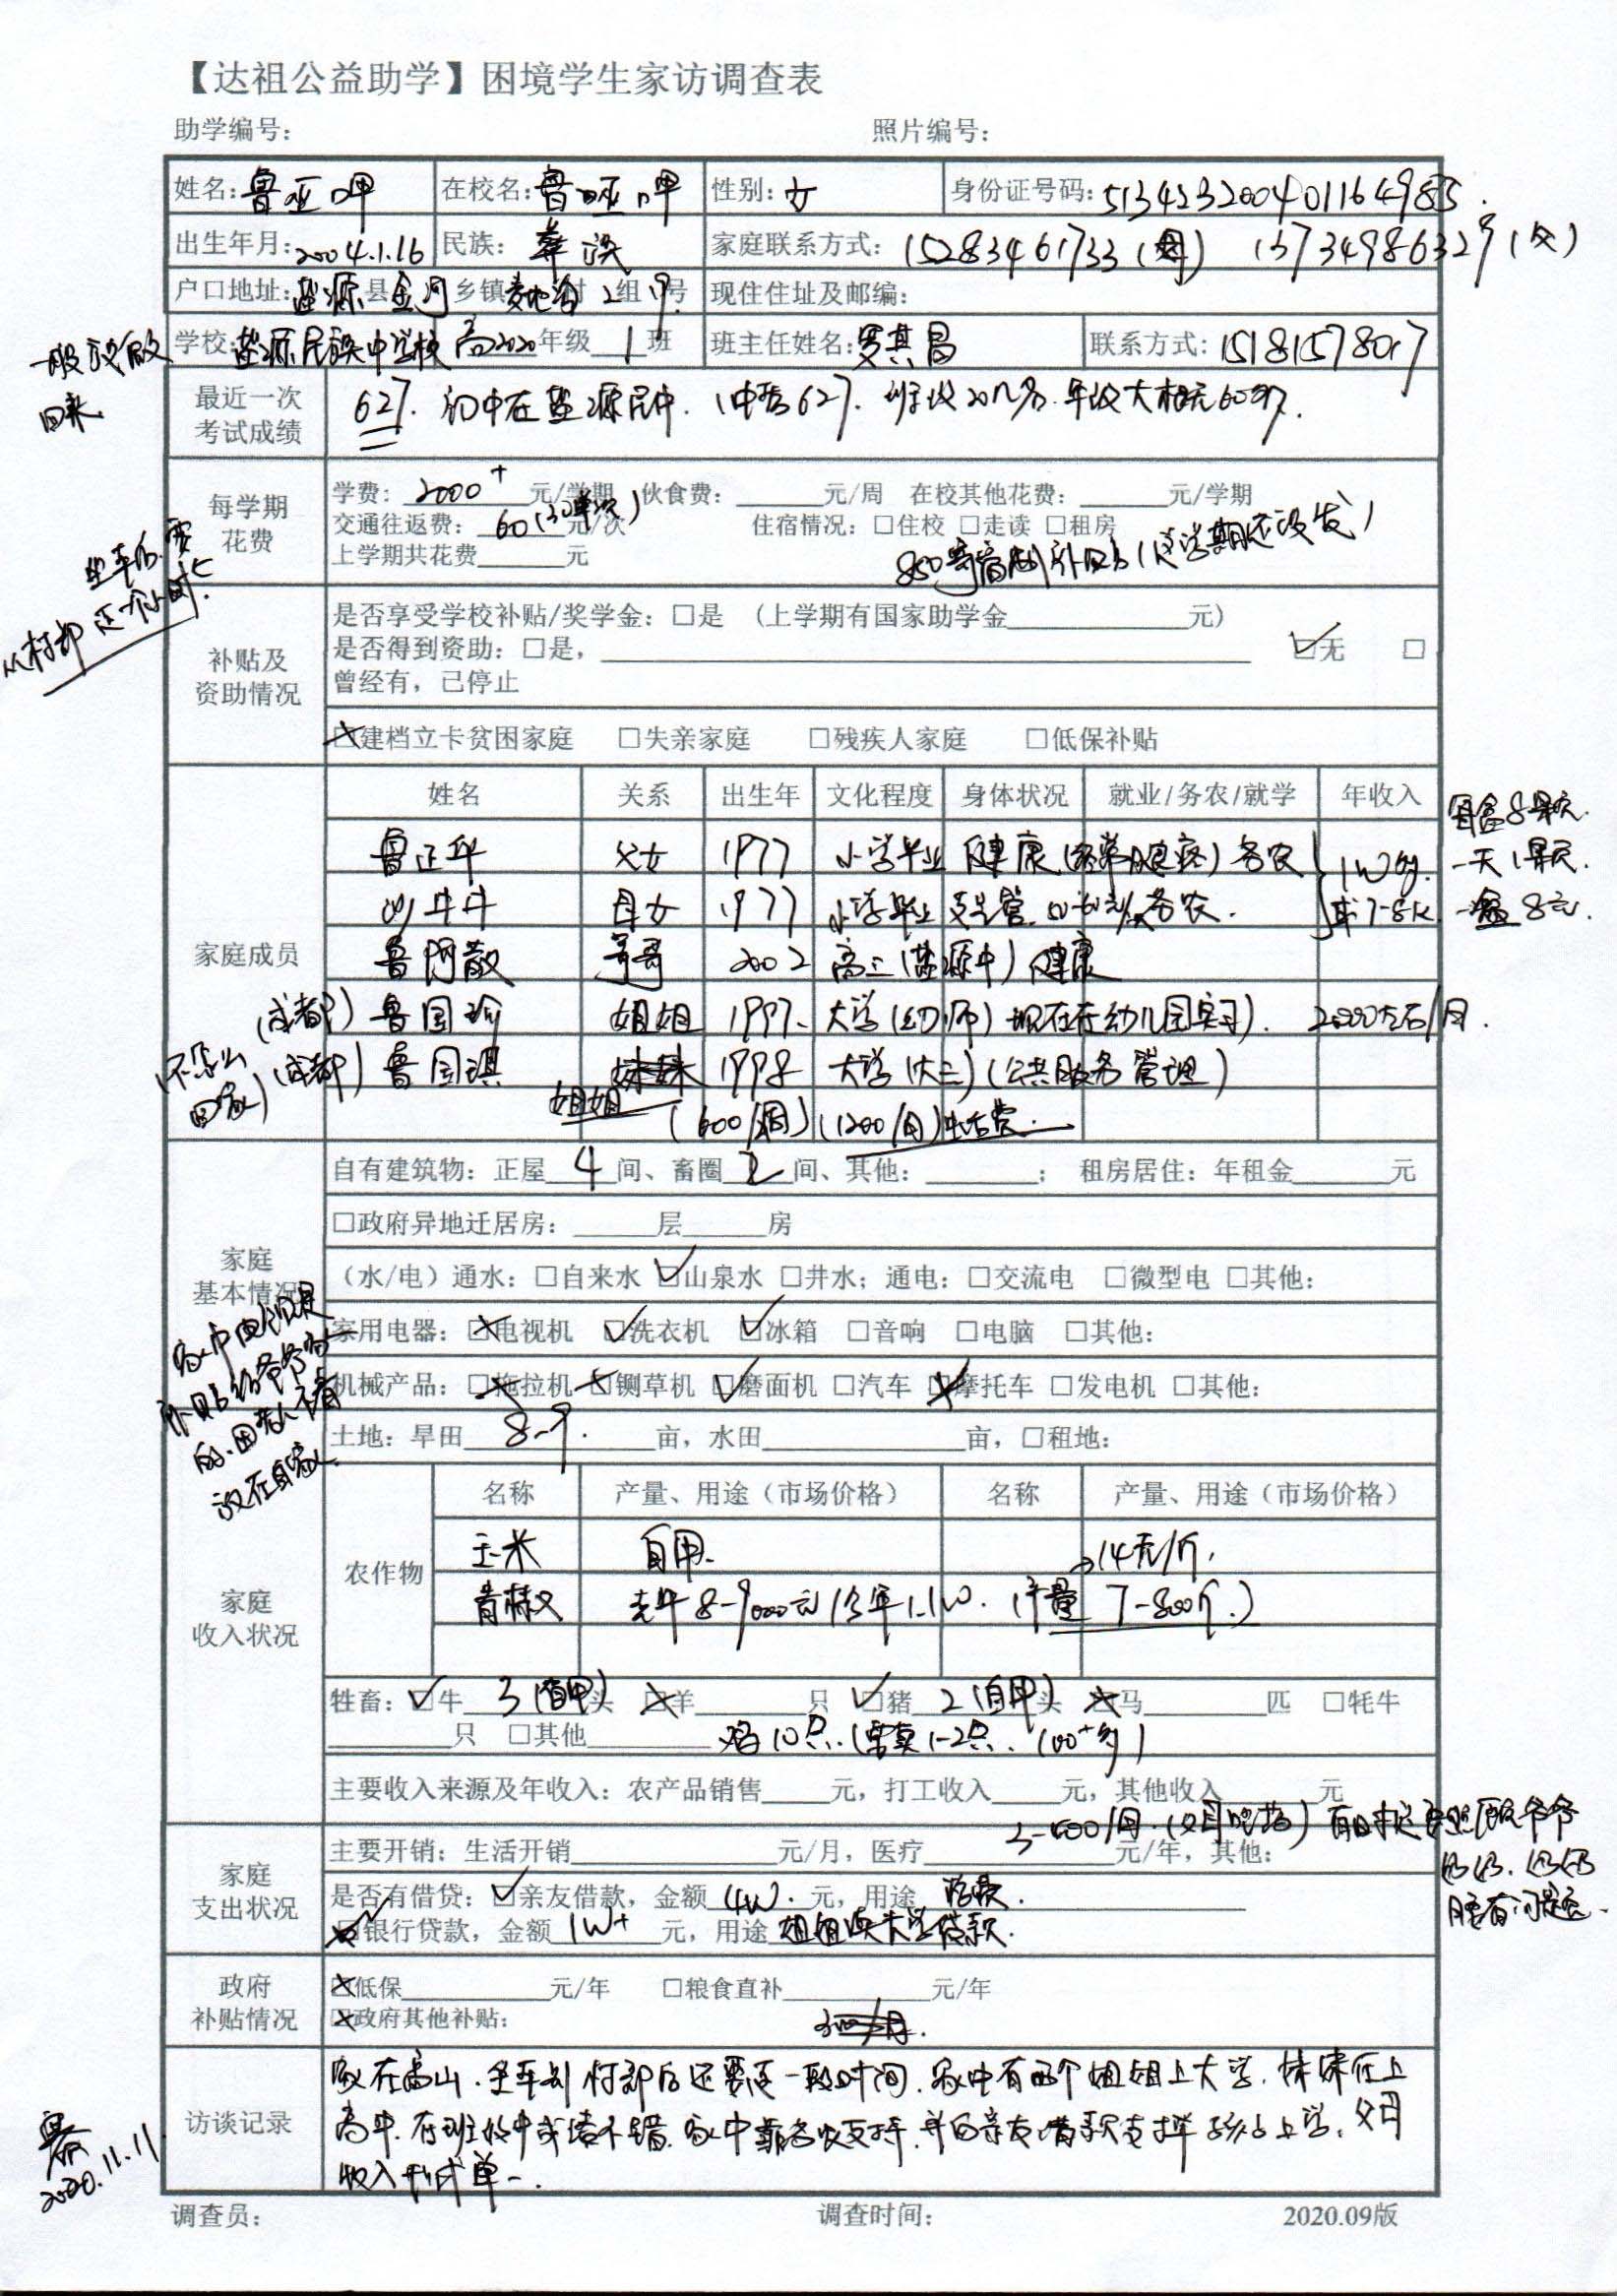 【达祖公益助学】困境学生家访调查表
助学编号： 照片编号：
姓名：鲁亚呷 在校名：鲁哑呷 性别：女 身份证号码：513423200401164985
出生年月：2004.1.16 民族：彝族 家庭联系方式：15283461733（母） 13734986329（父）
户口地址：盐源县金河乡镇 村2组 号 现住住址及邮编：
学校：盐源民族中学校 高2020年级1班 班主任姓名：罗其昌 联系方式：15181578017
一般 放假
回来
最近一次
考试成绩
627. 初中在盐源民中.（中考627. 班级20几名. 年级大概60多）.
每学期
花费
学费：2000+元/学期 伙食费：元/周 在校其他花费：元/学期
交通往返费：60（30单次）元/次 住宿情况：□住校 □走读 □租房
上学期共花费 元 850寄宿制补贴（这学期还没发）
坐车后. 要
从村部 走一个小时.
补贴及
资助情况
是否享受学校补贴/奖学金：□是 （上学期有国家助学金 元）
是否得到资助：□是， ☑无 □
曾经有，已停止
建档立卡贫困家庭 □失亲家庭 □残疾人家庭 □低保补贴
家庭成员
姓名 关系 出生年 文化程度 身体状况 就业/务农/就学 年收入
鲁正华 父女 1977 小学毕业 健康（经常腿疼）务农 1W多.
母女 1977 小学毕业 支气管. 务农. 或7-8k.
每盒8颗.
一天1颗.
一盒8元.
鲁阿散 哥哥 2002 高三（盐源中）健康
（成都）鲁国珍 姐姐 1997. 大学（幼师）现在在幼儿园实习）. 2000左右/月.
（不怎么回家）（成都）鲁国琪 妹妹 1998 大学（大三）（公共服务管理）
姐姐 （600/周）（1200/月）生活费.
家庭
基本情况
自有建筑物：正屋4间、畜圈2间、其他：； 租房居住：年租金 元
□政府异地迁居房：层 房
（水/电）通水：□自来水 ☑山泉水 □井水；通电：□交流电 □微型电 □其他：
家用电器：☒电视机 ☑洗衣机 ☑冰箱 □音响 □电脑 □其他：
机械产品：☒拖拉机 ☒铡草机 ☑磨面机 □汽车 ☒摩托车 □发电机 □其他：
土地：旱田8-9.亩，水田 亩，□租地：
家中电视是
补贴给爷爷的
的. 因老人不看
放在自家
家庭
收入状况
农作物
名称 产量、用途（市场价格） 名称 产量、用途（市场价格）
玉米 自用. →14元/斤.
青椒 去年8-9000元/今年1.1W.（产量 7-800斤.）
牲畜：☑牛3（自用）头 ☒羊 只 ☑猪2（自用）头 ☒马 匹 □牦牛
只 □其他 鸡10只.（需卖1-2只. 100+多）
主要收入来源及年收入：农产品销售 元，打工收入 元，其他收入 元
家庭
支出状况
3-400/月.（父母吃药）有时还要照顾爷爷
奶奶. 奶奶
腰有问题.
主要开销：生活开销 元/月，医疗 元/年，其他：
是否有借贷：☑亲友借款，金额4W.元，用途
银行贷款，金额1W+元，用途姐姐读大学贷款.
政府
补贴情况
☒低保 元/年 □粮食直补 元/年
☒政府其他补贴：
访谈记录
家在高山. 坐车到村部后还要走一段时间. 家中有两个姐姐上大学. 妹妹在上
高中. 在班级中成绩不错. 家中靠务农支持. 并向亲友借款支撑孩子上学. 父母
收入形式单一.
2020.11.11
调查员： 调查时间： 2020.09版